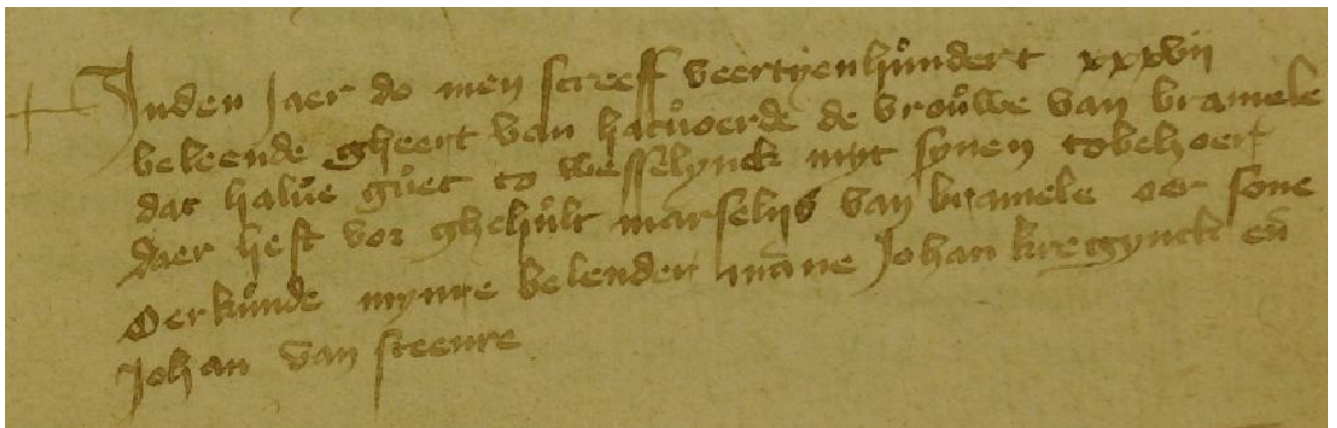 Inden Jaer do men screeff veertyenhůndert xxxvii
beleende gheert van hacůoerde de vroůwe van bramele
dat halůe gůet to wesselynck myt synen tobehoer
daer heft vor ghehůlt marselijs van bramele oer sone
Oerkůnde mynre belender māne Johan kreyynck eñ
Johan van steenre